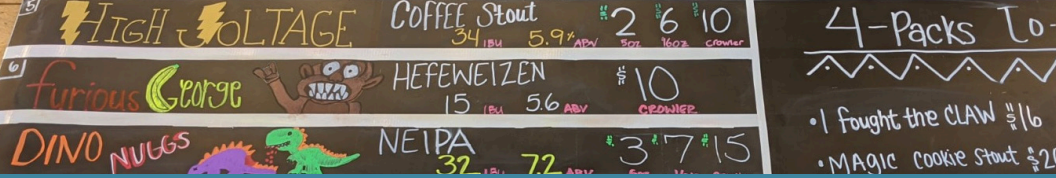 5
HIGH VOLTAGE COFFEE Stout $2 $6 $10
34 IBU 5.9% ABV 5oz 16oz Crowler
6
Furious George HEFEWEIZEN $10
15 IBU 5.6 ABV CROWLER
DINO NUGGS NEIPA $3 $7 $15
32 IBU 7.2 ABV
4-Packs To-
• I fought the CLAW $16
• MAGIC Cookie Stout $2